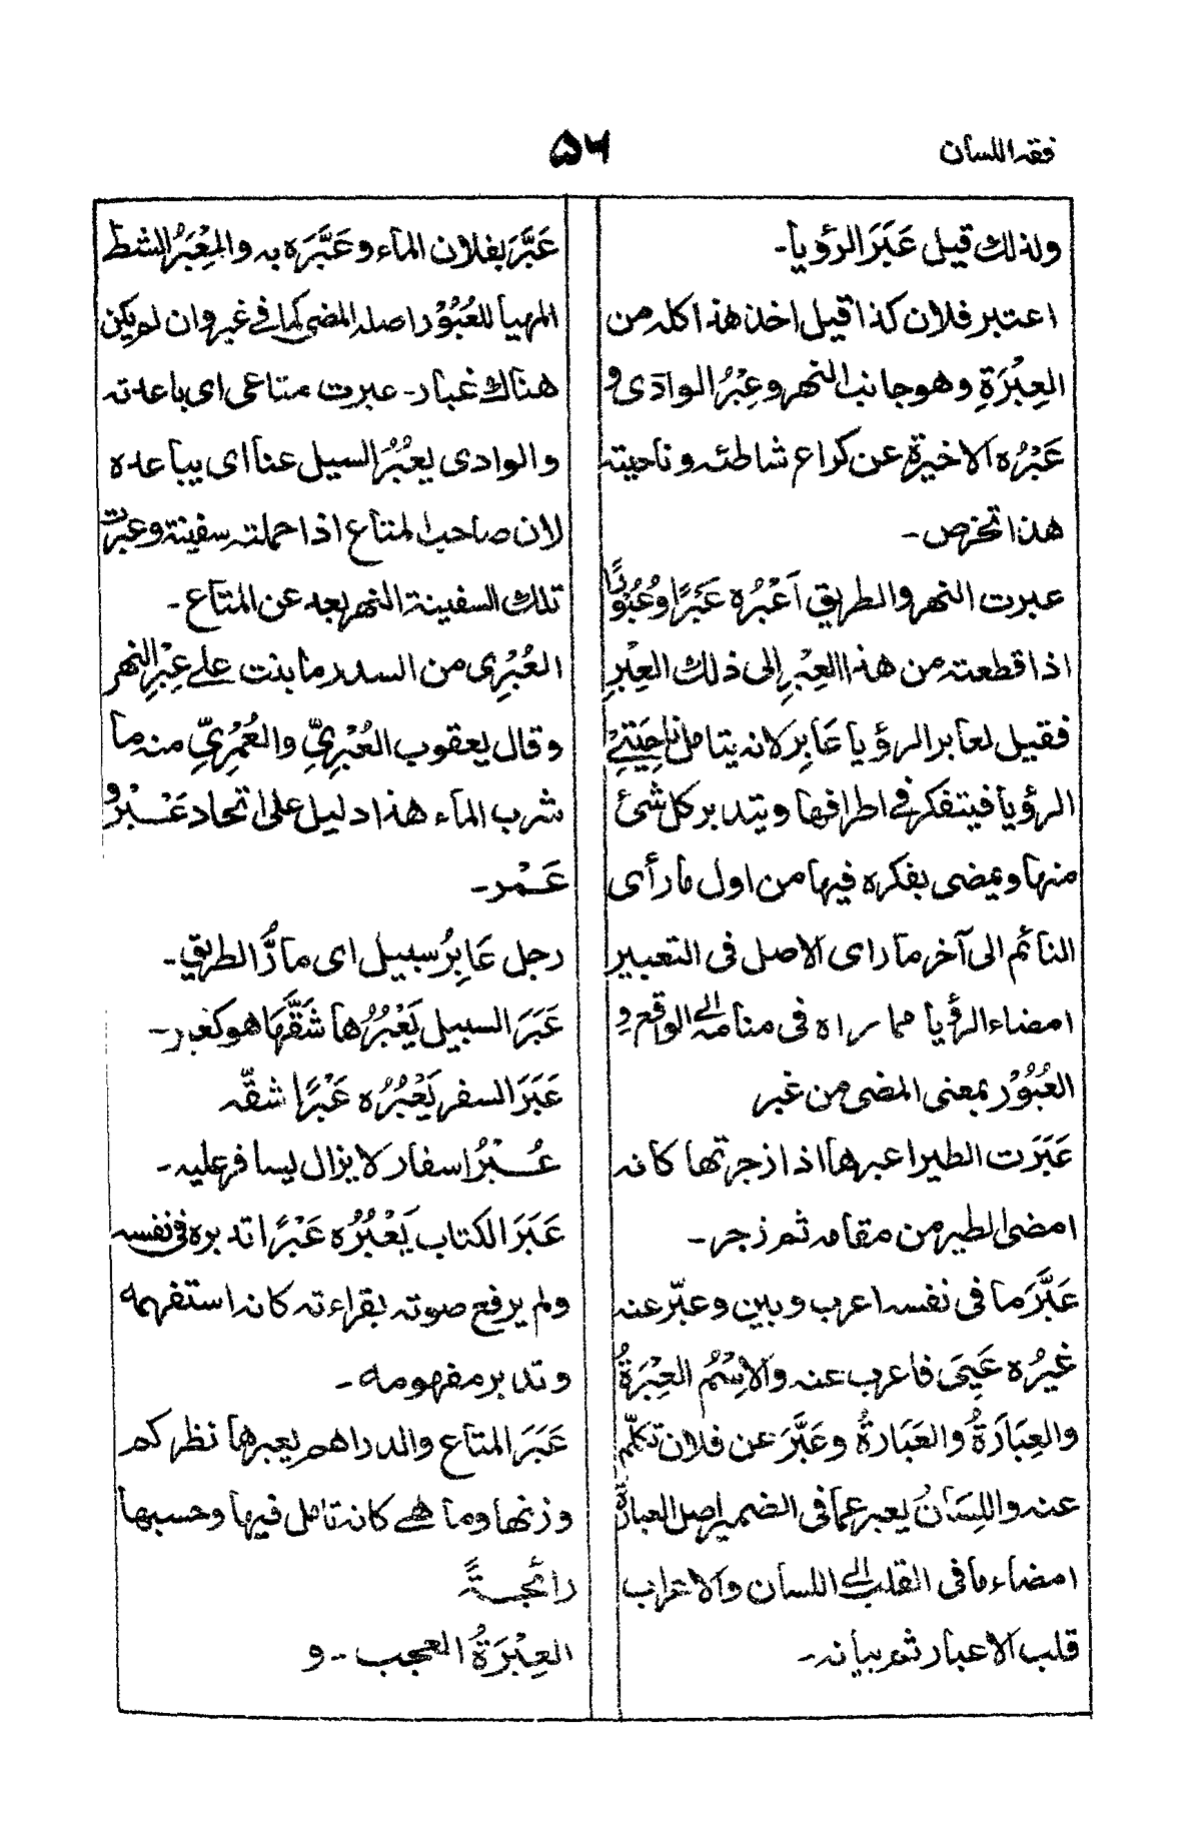 فقه اللسان
۵۶
ولذلك قيل عَبَرَ الرؤيا-
اعتبر فلان كذا قيل اخذ هذا كله من
العِبْرَةِ وهو جانب النهر وعِبْرُ الوادی و
عَبْرُه الاخيرة عن كراع شاطئه وناحيته
هذا تخرص-
عبرت النهر والطريق اَعْبُرُه عَبْرًا وعُبُوْرًا
اذا قطعته من هذا العِبْرِ الی ذلك العِبْرِ
فقيل لعابر الرؤيا عَابِر لانه يتامل ناحِيَتَيْ
الرؤيا فيتفكر فی اطرافها ويتدبر كل شئ
منها ويمضی بفكره فيها من اول ما رأی
النائم الی آخر ما رای الاصل فی التعبير
امضاء الرؤيا مما راه فی منامه الی الواقع و
العُبُوْر بمعنی المضی من غبر
عَبَرَت الطير اعبرها اذا زجرتها كانه
امضی الطير من مقامه ثم زجر-
عَبَّرَ ما فی نفسه اعرب وبين وعبّر عنه
غيرُه عَيِیَ فاعرب عنه والاِسْمُ العِبْرَةُ
والعِبَارَةُ والعَبَارةُ وعَبَّرَ عن فلان تكلّم
عنه واللِسَانُ يعبر عما فی الضمير اصل العبارة
امضاء ما فی القلب الی اللسان والاعراب
قلب الاعبار ثم بيانه-
عَبَّرَ بفلان الماء وعَبَّرَه به والمِعْبَرُ الشط
المهيأ للعُبُوْر اصله المضی كما فی غبر وان لم يكن
هناك غبار- عبرت متاعی ای باعدته
والوادی يعبُرُ السيل عنا ای يباعده
لان صاحب المتاع اذا حملته سفينة وعبرت
تلك السفينة النهر بعد عن المتاع-
العُبْرِی من السدر ما نبت علی عِبْرِ النهر
وقال يعقوب العُبْرِیّ والعُمْرِیّ منه ما
شرب الماء هذا دليل علی اتحاد عَبْر و
عَمْر-
رجل عَابِرُ سبيل ای مارُّ الطريق-
عَبَرَ السبيل يَعْبُرُها شَقَّهَا هو كغبر-
عَبَرَ السفر يَعْبُرُه عَبْرًا شقّه
عُبْرُ اسفار لا يزال يسافر عليه-
عَبَرَ الكتاب يَعْبُرُه عَبْرًا تدبره فی نفسه
ولم يرفع صوته بقراءته كانه استفهمه
وتدبر مفهومه-
عَبَرَ المتاع والدراهم يعبرها نظر كم
وزنها وما هے كانه تامل فيها وحسبها
رائجةً
العِبْرَةُ العجب-و